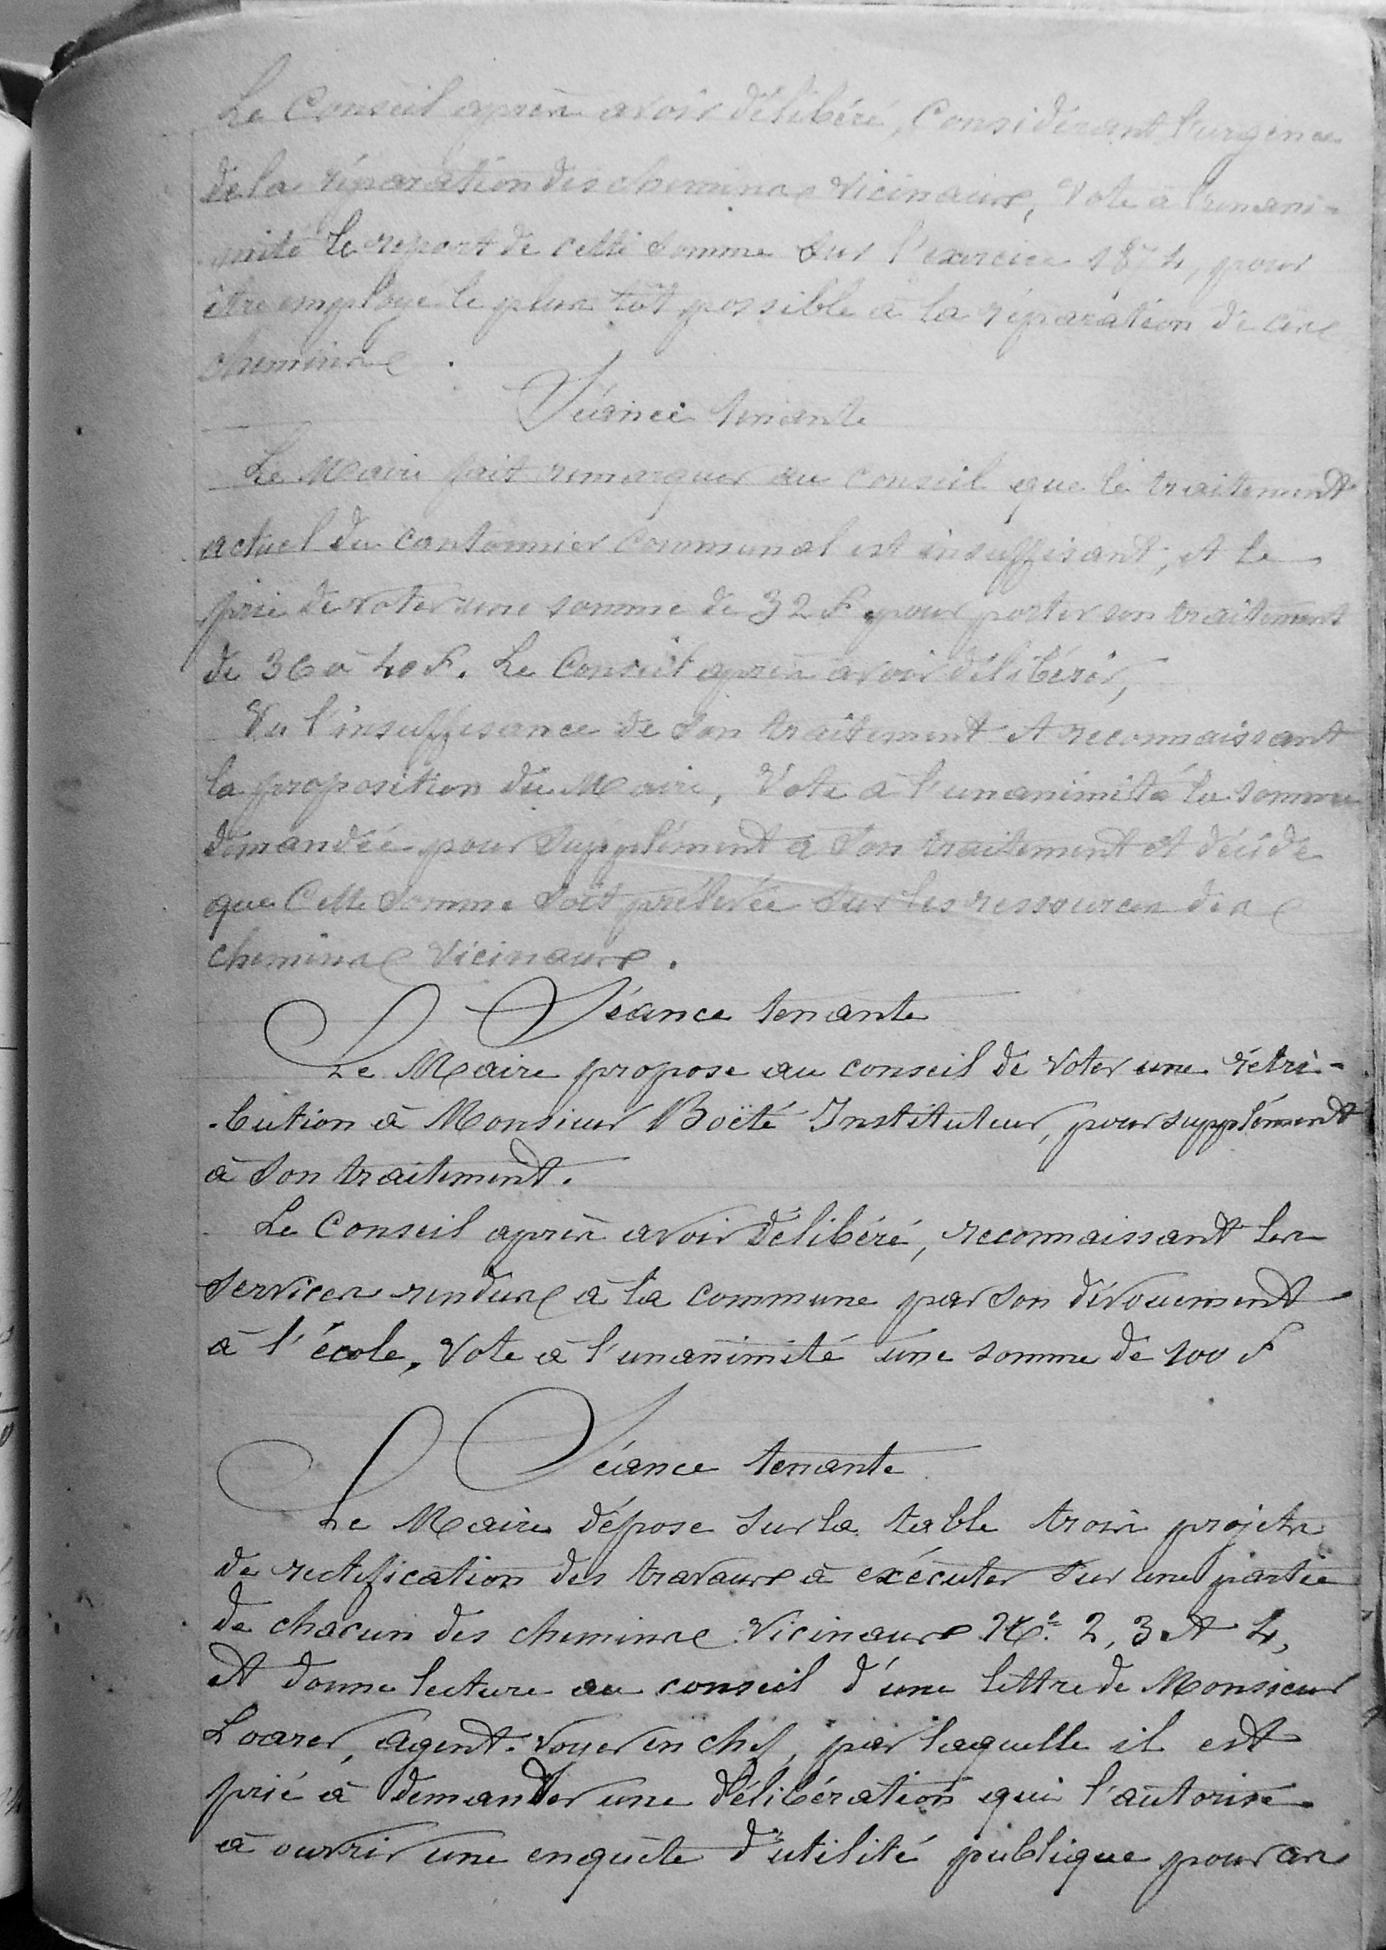 Le Conseil après avoir délibéré, Considérant l'urgence
de la réparation des chemins vicinaux, Vote à l'unani-
mité le report de cette somme sur l'exercice 1874, pour
être employé le plus tôt possible à la réparation de ces
chemins.
Séance tenante
Le Maire fait remarquer au conseil que le traitement
actuel du cantonnier communal est insuffisant; et le
prie de voter une somme de 32 F pour porter son traitement
de 36 à 40 F. Le Conseil après avoir délibéré,
Vu l'insuffisance de son traitement et reconnaissant
la proposition du Maire, Vote à l'unanimité la somme
demandée pour supplément à son traitement et décide
que Cette somme soit prélevée sur les ressources des
chemins Vicinaux.
Séance tenante
Le Maire propose au conseil de voter une rétri-
-bution à Monsieur Boëté Instituteur, pour supplément
à son traitement.
Le Conseil après avoir délibéré, reconnaissant les
services rendus à la commune par son dévouement
à l'école, Vote à l'unanimité une somme de 100 F
Séance tenante
Le Maire dépose sur la table trois projets
de rectification des travaux à exécuter sur une partie
de chacun des chemins Vicinaux Nos 2, 3 et 4,
et donne lecture au conseil d'une lettre de Monsieur
Loarer, agent-voyer en chef, par laquelle il est
prié à demander une délibération qui l'autorise
à ouvrir une enquête d'utilité publique pour ces